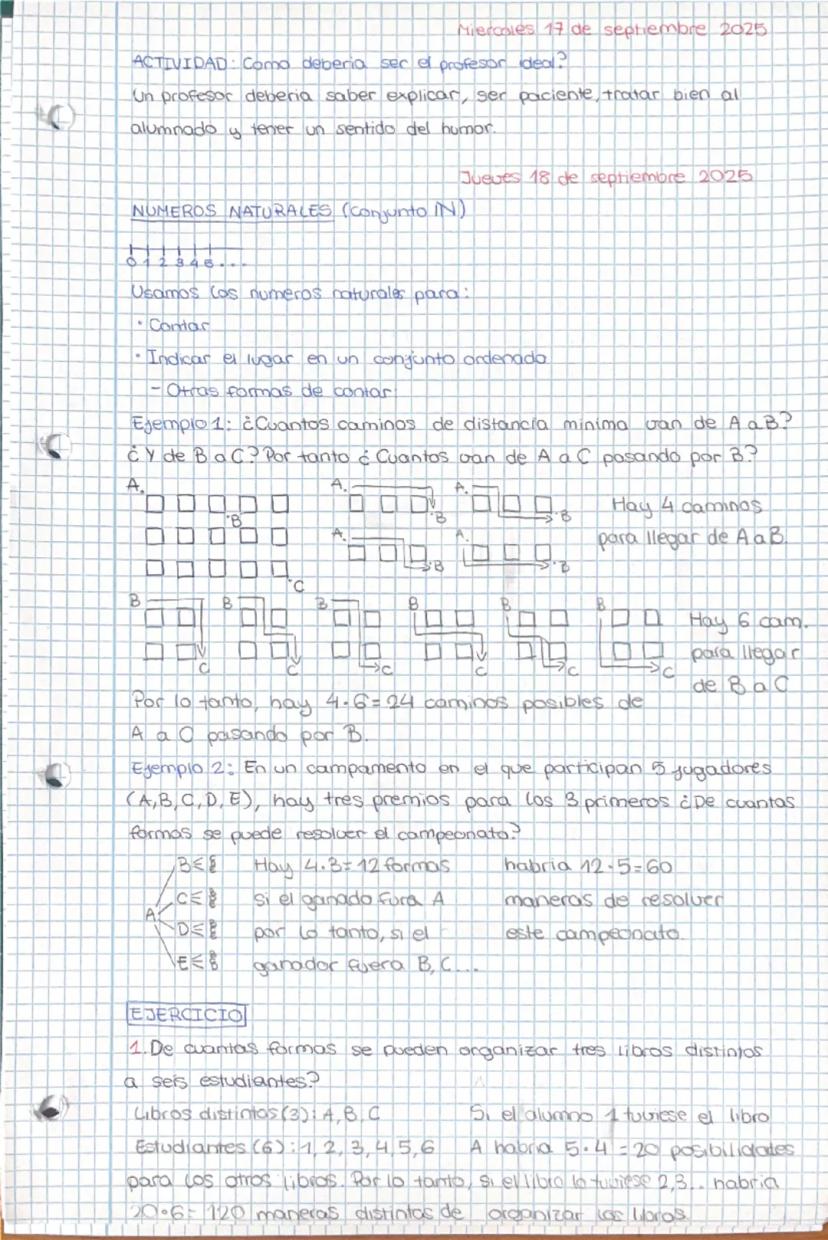 Miercoles 17 de septiembre 2025
ACTIVIDAD: Como deberia ser el profesor ideal?
Un profesor deberia saber explicar, ser paciente, tratar bien al
alumnado y tener un sentido del humor.
Jueves 18 de septiembre 2025
NUMEROS NATURALES (conjunto ℕ)
0 1 2 3 4 5 ...
Usamos los numeros naturales para:
· Contar
· Indicar el lugar en un conjunto ordenado
- Otras formas de contar:
Ejemplo 1: ¿Cuantos caminos de distancia minima van de A a B?
¿Y de B a C? Por tanto ¿Cuantos van de A a C pasando por B?
A. A. A. Hay 4 caminos
.B .B .B
A. A. para llegar de A a B.
.B .B
.C
B B B B B B Hay 6 cam.
para llegar
C C C C C C
de B a C
Por lo tanto, hay 4·6=24 caminos posibles de
A a C pasando por B.
Ejemplo 2: En un campamento en el que participan 5 jugadores
(A,B,C,D,E), hay tres premios para los 3 primeros ¿De cuantas
formas se puede resolver el campeonato?
B Hay 4·3=12 formas habria 12·5=60
C si el ganado fura A maneras de resolver
A
D por lo tanto, si el este campeonato.
E ganador fuera B, C...
EJERCICIO
1. De cuantas formas se pueden organizar tres libros distintos
a seis estudiantes?
Libros distintos (3): A, B, C Si el alumno 1 tuviese el libro
Estudiantes (6): 1, 2, 3, 4, 5, 6 A habria 5·4=20 posibilidades
para los otros libros. Por lo tanto, si el libro lo tuviese 2,3.. habria
20·6= 120 maneras distintas de organizar los libros.